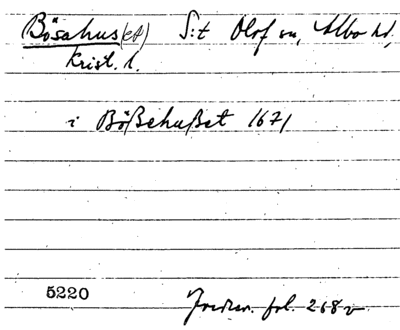 Bösahus(et) S:t Olof sn, Albo hd,
Krist. l.
i Bößehußet 1671
5220 Jordrev. fol. 268 v